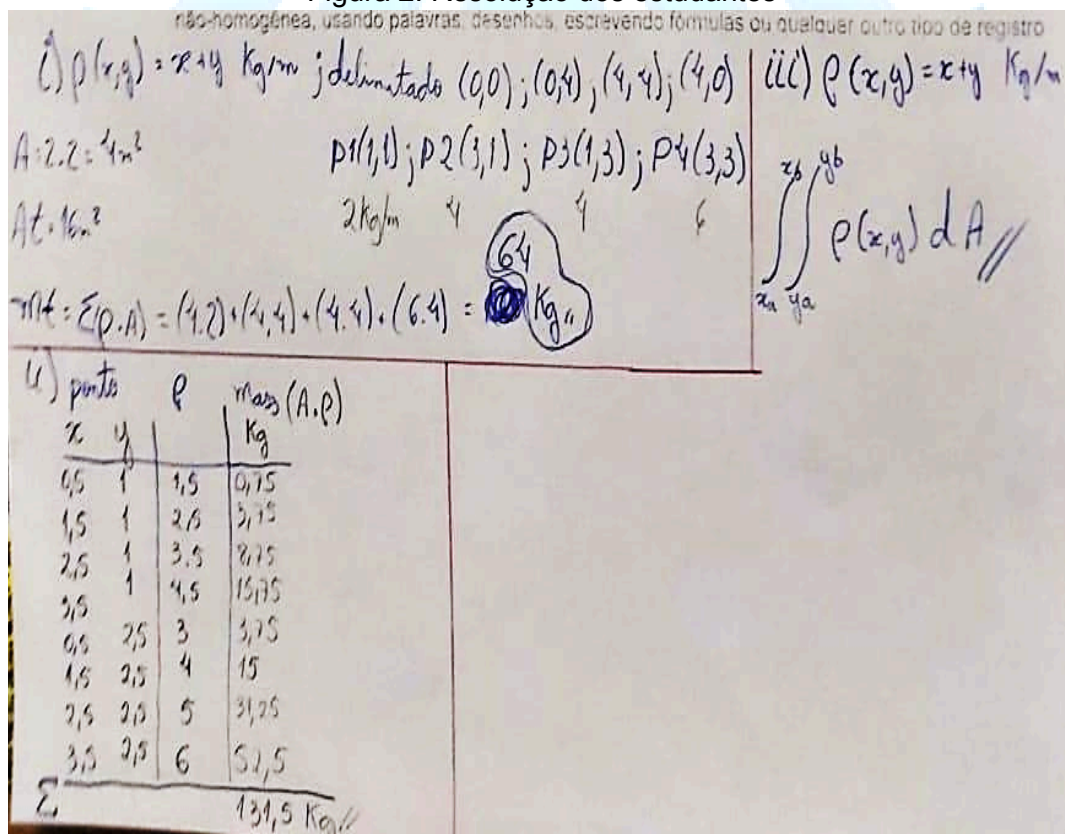 Figura 2: Resolução dos estudantes
não-homogênea, usando palavras, desenhos, escrevendo fórmulas ou qualquer outro tipo de registro
i) ρ(x,y) = x+y Kg/m ; delimitado (0,0) ; (0,4) ; (4,4) ; (4,0)
A = 2.2 = 4m²
p1(1,1) ; p2(3,1) ; p3(1,3) ; p4(3,3)
At = 16m²
2kg/m 4 4 6
mt = Σ(ρ.A) = (4.2)+(4.4)+(4.4)+(6.4) = 64 Kg//
iii) ρ(x,y) = x+y Kg/m
∫xa xb ∫ya yb ρ(x,y) dA//
ii) ponto ρ mass (A.ρ)
x y Kg
0,5 1 1,5 0,75
1,5 1 2,5 3,75
2,5 1 3,5 8,75
3,5 1 4,5 15,75
0,5 2,5 3 3,75
1,5 2,5 4 15
2,5 2,5 5 31,25
3,5 2,5 6 52,5
Σ 131,5 Kg//